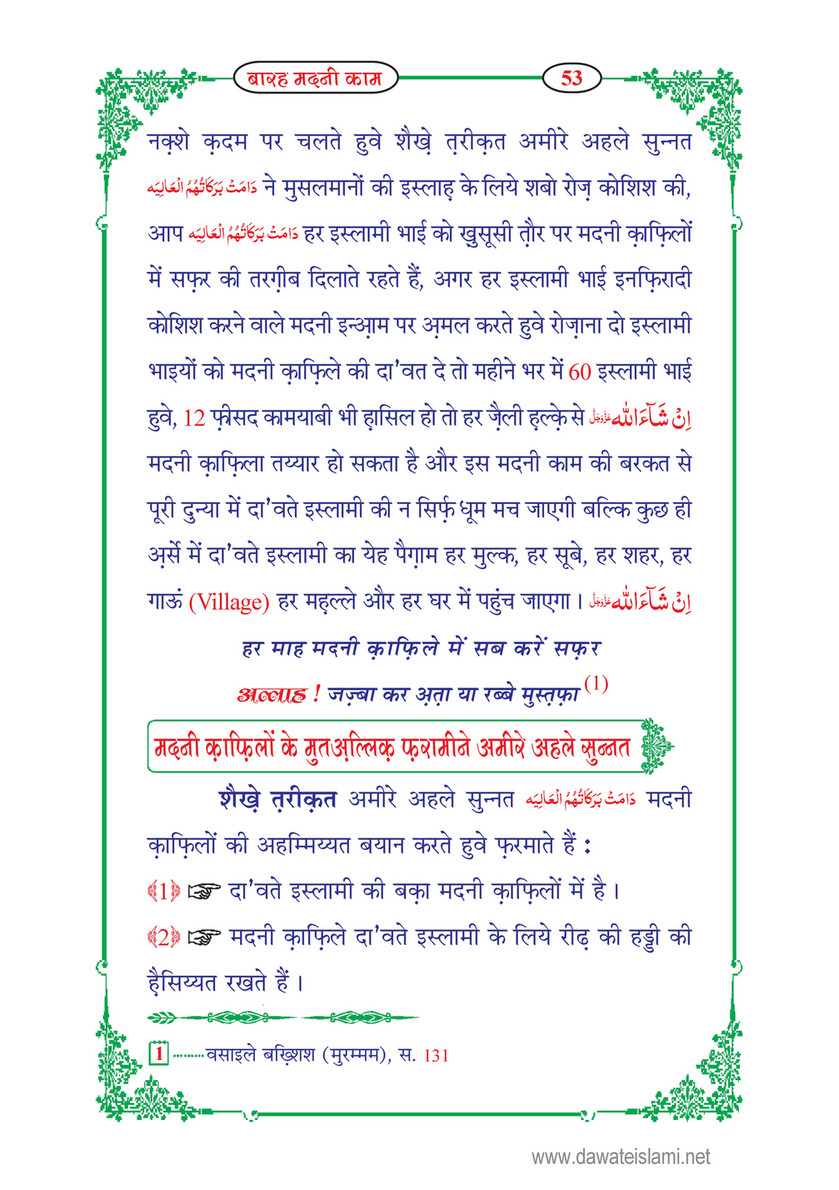 बारह मदनी काम
53
नक़्शे क़दम पर चलते हुवे शैख़े त़रीक़त अमीरे अहले सुन्नत
دَامَتْ بَرَكَاتُهُمُ الْعَالِيَه ने मुसलमानों की इस्लाह़ के लिये शबो रोज़ कोशिश की,
आप دَامَتْ بَرَكَاتُهُمُ الْعَالِيَه हर इस्लामी भाई को खुसूसी त़ौर पर मदनी क़ाफ़िलों
में सफ़र की तरग़ीब दिलाते रहते हैं, अगर हर इस्लामी भाई इनफ़िरादी
कोशिश करने वाले मदनी इन्आ़म पर अ़मल करते हुवे रोज़ाना दो इस्लामी
भाइयों को मदनी क़ाफ़िले की दा'वत दे तो महीने भर में 60 इस्लामी भाई
हुवे, 12 फ़ीसद कामयाबी भी ह़ासिल हो तो हर ज़ैली ह़ल्के़ से اِنْ شَآءَ اللّٰه عَزَّوَجَلَّ
मदनी क़ाफ़िला तय्यार हो सकता है और इस मदनी काम की बरकत से
पूरी दुन्या में दा'वते इस्लामी की न सिर्फ़ धूम मच जाएगी बल्कि कुछ ही
अ़र्से में दा'वते इस्लामी का येह पैग़ाम हर मुल्क, हर सूबे, हर शहर, हर
गाऊं (Village) हर मह़ल्ले और हर घर में पहुंच जाएगा । اِنْ شَآءَ اللّٰه عَزَّوَجَلَّ
हर माह मदनी क़ाफ़िले में सब करें सफ़र
अल्लाह ! जज़्बा कर अ़त़ा या रब्बे मुस्त़फ़ा (1)
मदनी क़ाफ़िलों के मुतअ़ल्लिक़ फ़रामीने अमीरे अहले सुन्नत
शैख़े त़रीक़त अमीरे अहले सुन्नत دَامَتْ بَرَكَاتُهُمُ الْعَالِيَه मदनी
क़ाफ़िलों की अहम्मिय्यत बयान करते हुवे फ़रमाते हैं :
﴾1﴿ ☞ दा'वते इस्लामी की बक़ा मदनी क़ाफ़िलों में है ।
﴾2﴿ ☞ मदनी क़ाफ़िले दा'वते इस्लामी के लिये रीढ़ की हड्डी की
ह़ैसिय्यत रखते हैं ।
1 .........वसाइले बख़्शिश (मुरम्मम), स. 131
www.dawateislami.net